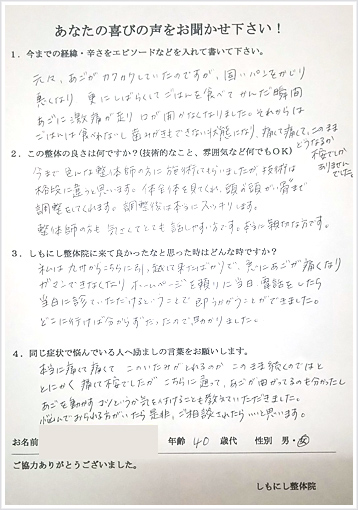 あなたの喜びの声をお聞かせ下さい！
１．今までの経緯・辛さをエピソードなどを入れて書いて下さい。
元々、あごがカクカクしていたのですが、固いパンをかじり
悪くなり 更にしばらくしてごはんを食べてかんだ瞬間
あごに激痛が走り口が開かなくなりました。それからは
ごはんは食べれないし歯みがきもできない状態になり、痛くて痛くて、このまま
どうなるか
不安でしか
ありません
でした。
２．この整体の良さは何ですか？(技術的なこと、雰囲気など何でもＯＫ)
今まで色んな整体師の方に施術してもらいましたが、技術は
格段に違うと思います。体全体を見てくれ、頭から まで
調整をしてくれます。調整後は本当にスッキリします。
整体師の方も気さくでとても話しやすい方です。本当に親切な方です。
３．しもにし整体院に来て良かったなと思った時はどんな時ですか？
私は九州からこちらに引っ越して来たばかりで、急にあごが痛くなり
ガマンできなくなり ホームページを頼りに当日電話をしたら
当日に診ていただけるということで即うかがうことができました。
どこに行けば分からずだったので助かりました。
４．同じ症状で悩んでいる人へ励ましの言葉をお願いします。
本当に痛くて痛くて このいたみがとれるのか このまま続くのではと
とにかく 痛くて不安でしたが こちらに通って、あごが曲がってるのも分かったし
あごを動かすコツというか気をつけることも教えていただきました。
悩んでおられる方がいたら是非、ご相談されたらいいと思います。
お名前 年齢 40 歳代 性別 男・女
ご協力ありがとうございました。
しもにし整体院